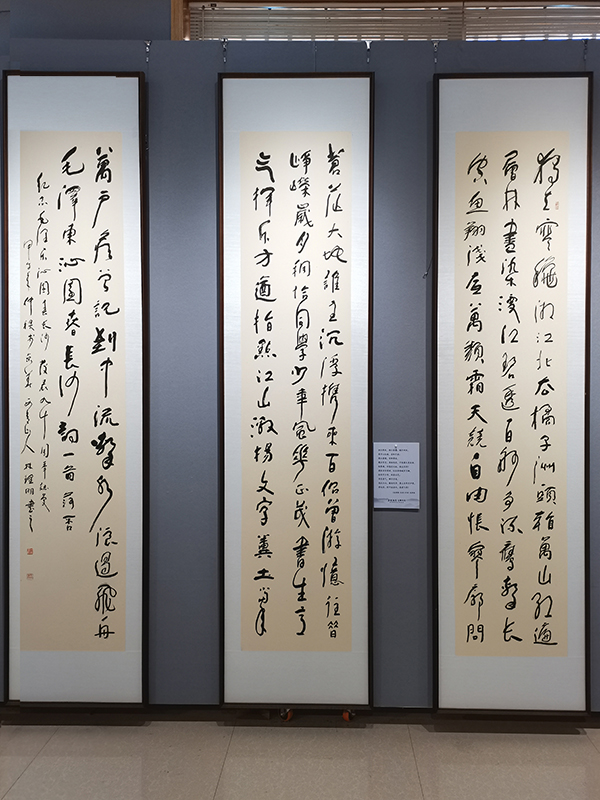 獨立寒龝湘江北去橘子洲頭看萬山紅遍
層林盡染漫江碧透百舸爭流鷹擊長
空魚翔淺底萬類霜天競自由悵寥廓問
蒼茫大地誰主沉浮攜來百侶曾游憶往昔
崢嶸歲月稠恰同學少年風華正茂書生意
气揮斥方遒指點江山激揚文字糞土當年
萬戶矦曾記到中流擊水浪遏飛舟
毛澤東沁園春長沙詞一首
紀念毛澤東沁園春長沙發表九十周年